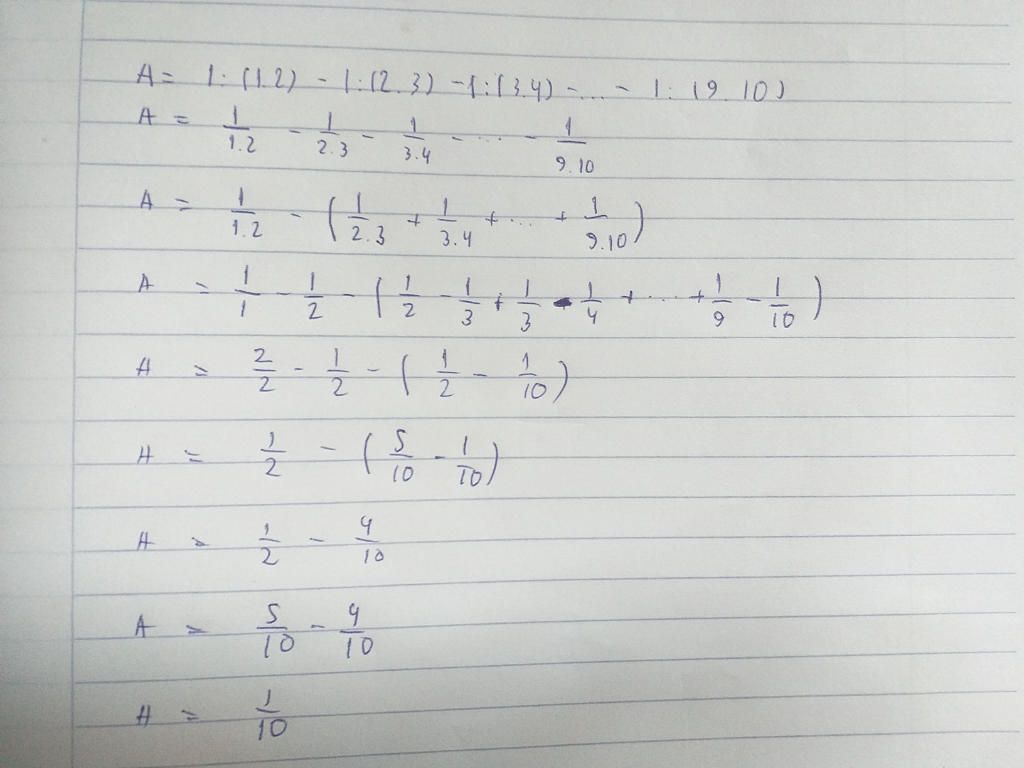 A = 1 : (1.2) - 1 : (2.3) - 1 : (3.4) - ... - 1 : (9.10)
A = 1/1.2 - 1/2.3 - 1/3.4 - ... - 1/9.10
A = 1/1.2 - (1/2.3 + 1/3.4 + ... + 1/9.10)
A = 1/1 - 1/2 - (1/2 - 1/3 + 1/3 - 1/4 + ... + 1/9 - 1/10)
A = 2/2 - 1/2 - (1/2 - 1/10)
A = 1/2 - (5/10 - 1/10)
A = 1/2 - 4/10
A = 5/10 - 4/10
A = 1/10